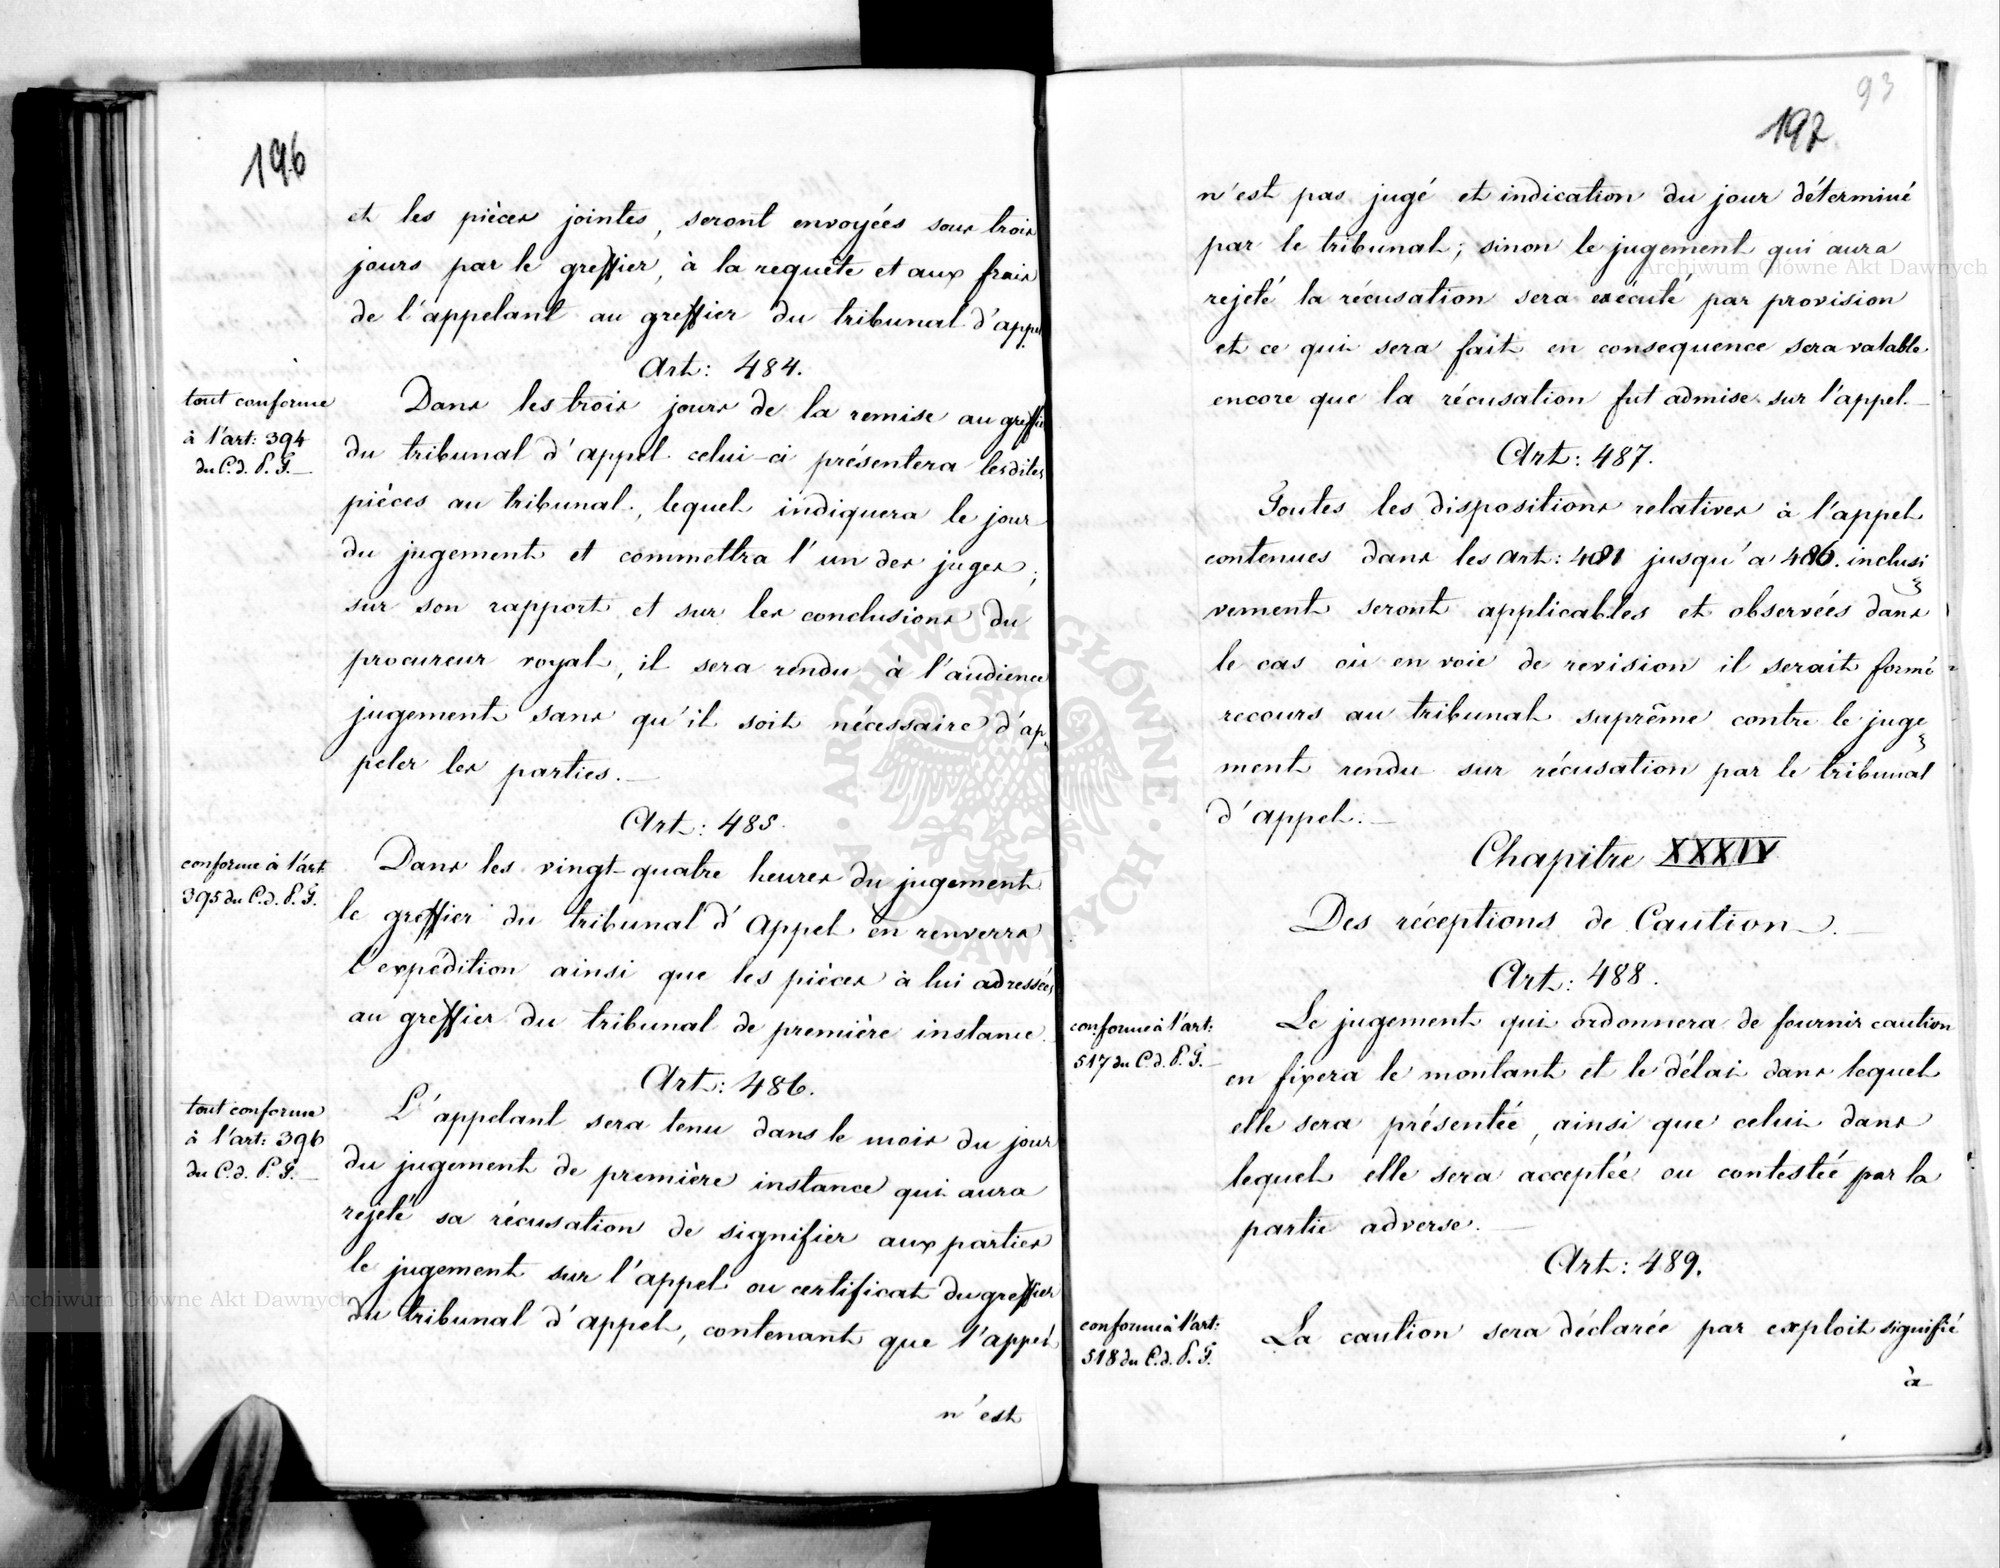 196
et les pièces jointes, seront envoyées sous trois
jours par le greffier, à la requête et aux frais
de l'appelant au greffier du tribunal d'appel
Art: 484.
tout conforme
à l'art: 394
du C. d. P. F.
Dans les trois jours de la remise au greffier
du tribunal d'appel celui-ci présentera lesdites
pièces au tribunal, lequel indiquera le jour
du jugement et commettra l'un des juges;
sur son rapport et sur les conclusions du
procureur royal, il sera rendu à l'audience
jugement sans qu'il soit nécessaire d'ap-
peler les parties.
Art: 485.
conforme à l'art
395 du C. d. P. F.
Dans les vingt-quatre heures du jugement
le greffier du tribunal d'Appel en renverra
l'expédition ainsi que les pièces à lui adressées
au greffier du tribunal de première instance.
Art: 486.
tout conforme
à l'art: 396
du C. d. P. F.
L'appelant sera tenu dans le mois du jour
du jugement de première instance qui aura
rejeté sa récusation de signifier aux parties
le jugement sur l'appel ou certificat du greffier
du tribunal d'appel, contenant que l'appel
n'est
93
197.
n'est pas jugé et indication du jour déterminé
par le tribunal; sinon le jugement qui aura
rejeté la récusation sera exécuté par provision
et ce qui sera fait en consequence sera valable
encore que la récusation fut admise sur l'appel.
Art: 487.
Toutes les dispositions relatives à l'appel
contenues dans les art: 481 jusqu'a 486. inclusi
vement seront applicables et observées dans
le cas où en voie de revision il serait formé
recours au tribunal suprême contre le juge
ment rendu sur récusation par le tribunal
d'appel.
Chapitre XXXIV
Des réceptions de Caution.
Art: 488.
conforme à l'art:
517 du C. d. P. F.
Le jugement qui ordonnera de fournir caution
en fixera le montant et le délai dans lequel
elle sera présentée, ainsi que celui dans
lequel elle sera acceptée ou contestée par la
partie adverse.
Art: 489.
conforme à l'art:
518 du C. d. P. F.
La caution sera déclarée par exploit signifié
à
Archiwum Główne Akt Dawnych
Archiwum Główne Akt Dawnych
ARCHIWUM GŁÓWNE AKT DAWNYCH